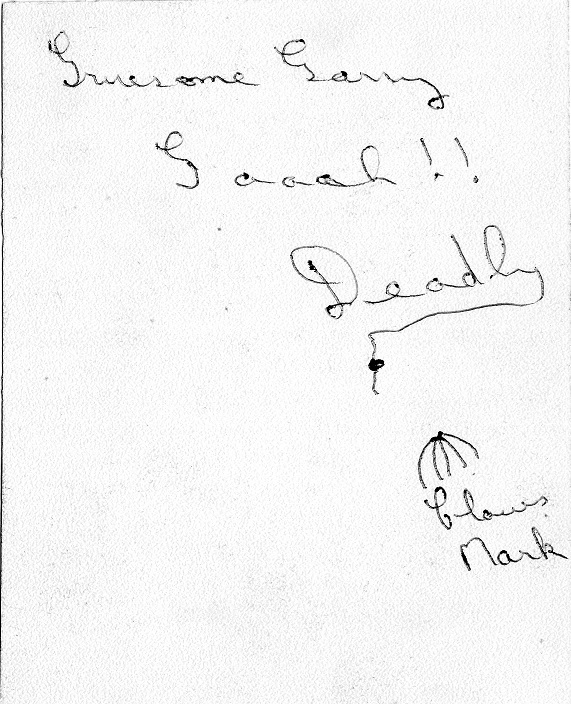 Gruesome Garry
Gaaah!!
Deadly
Claws
Mark